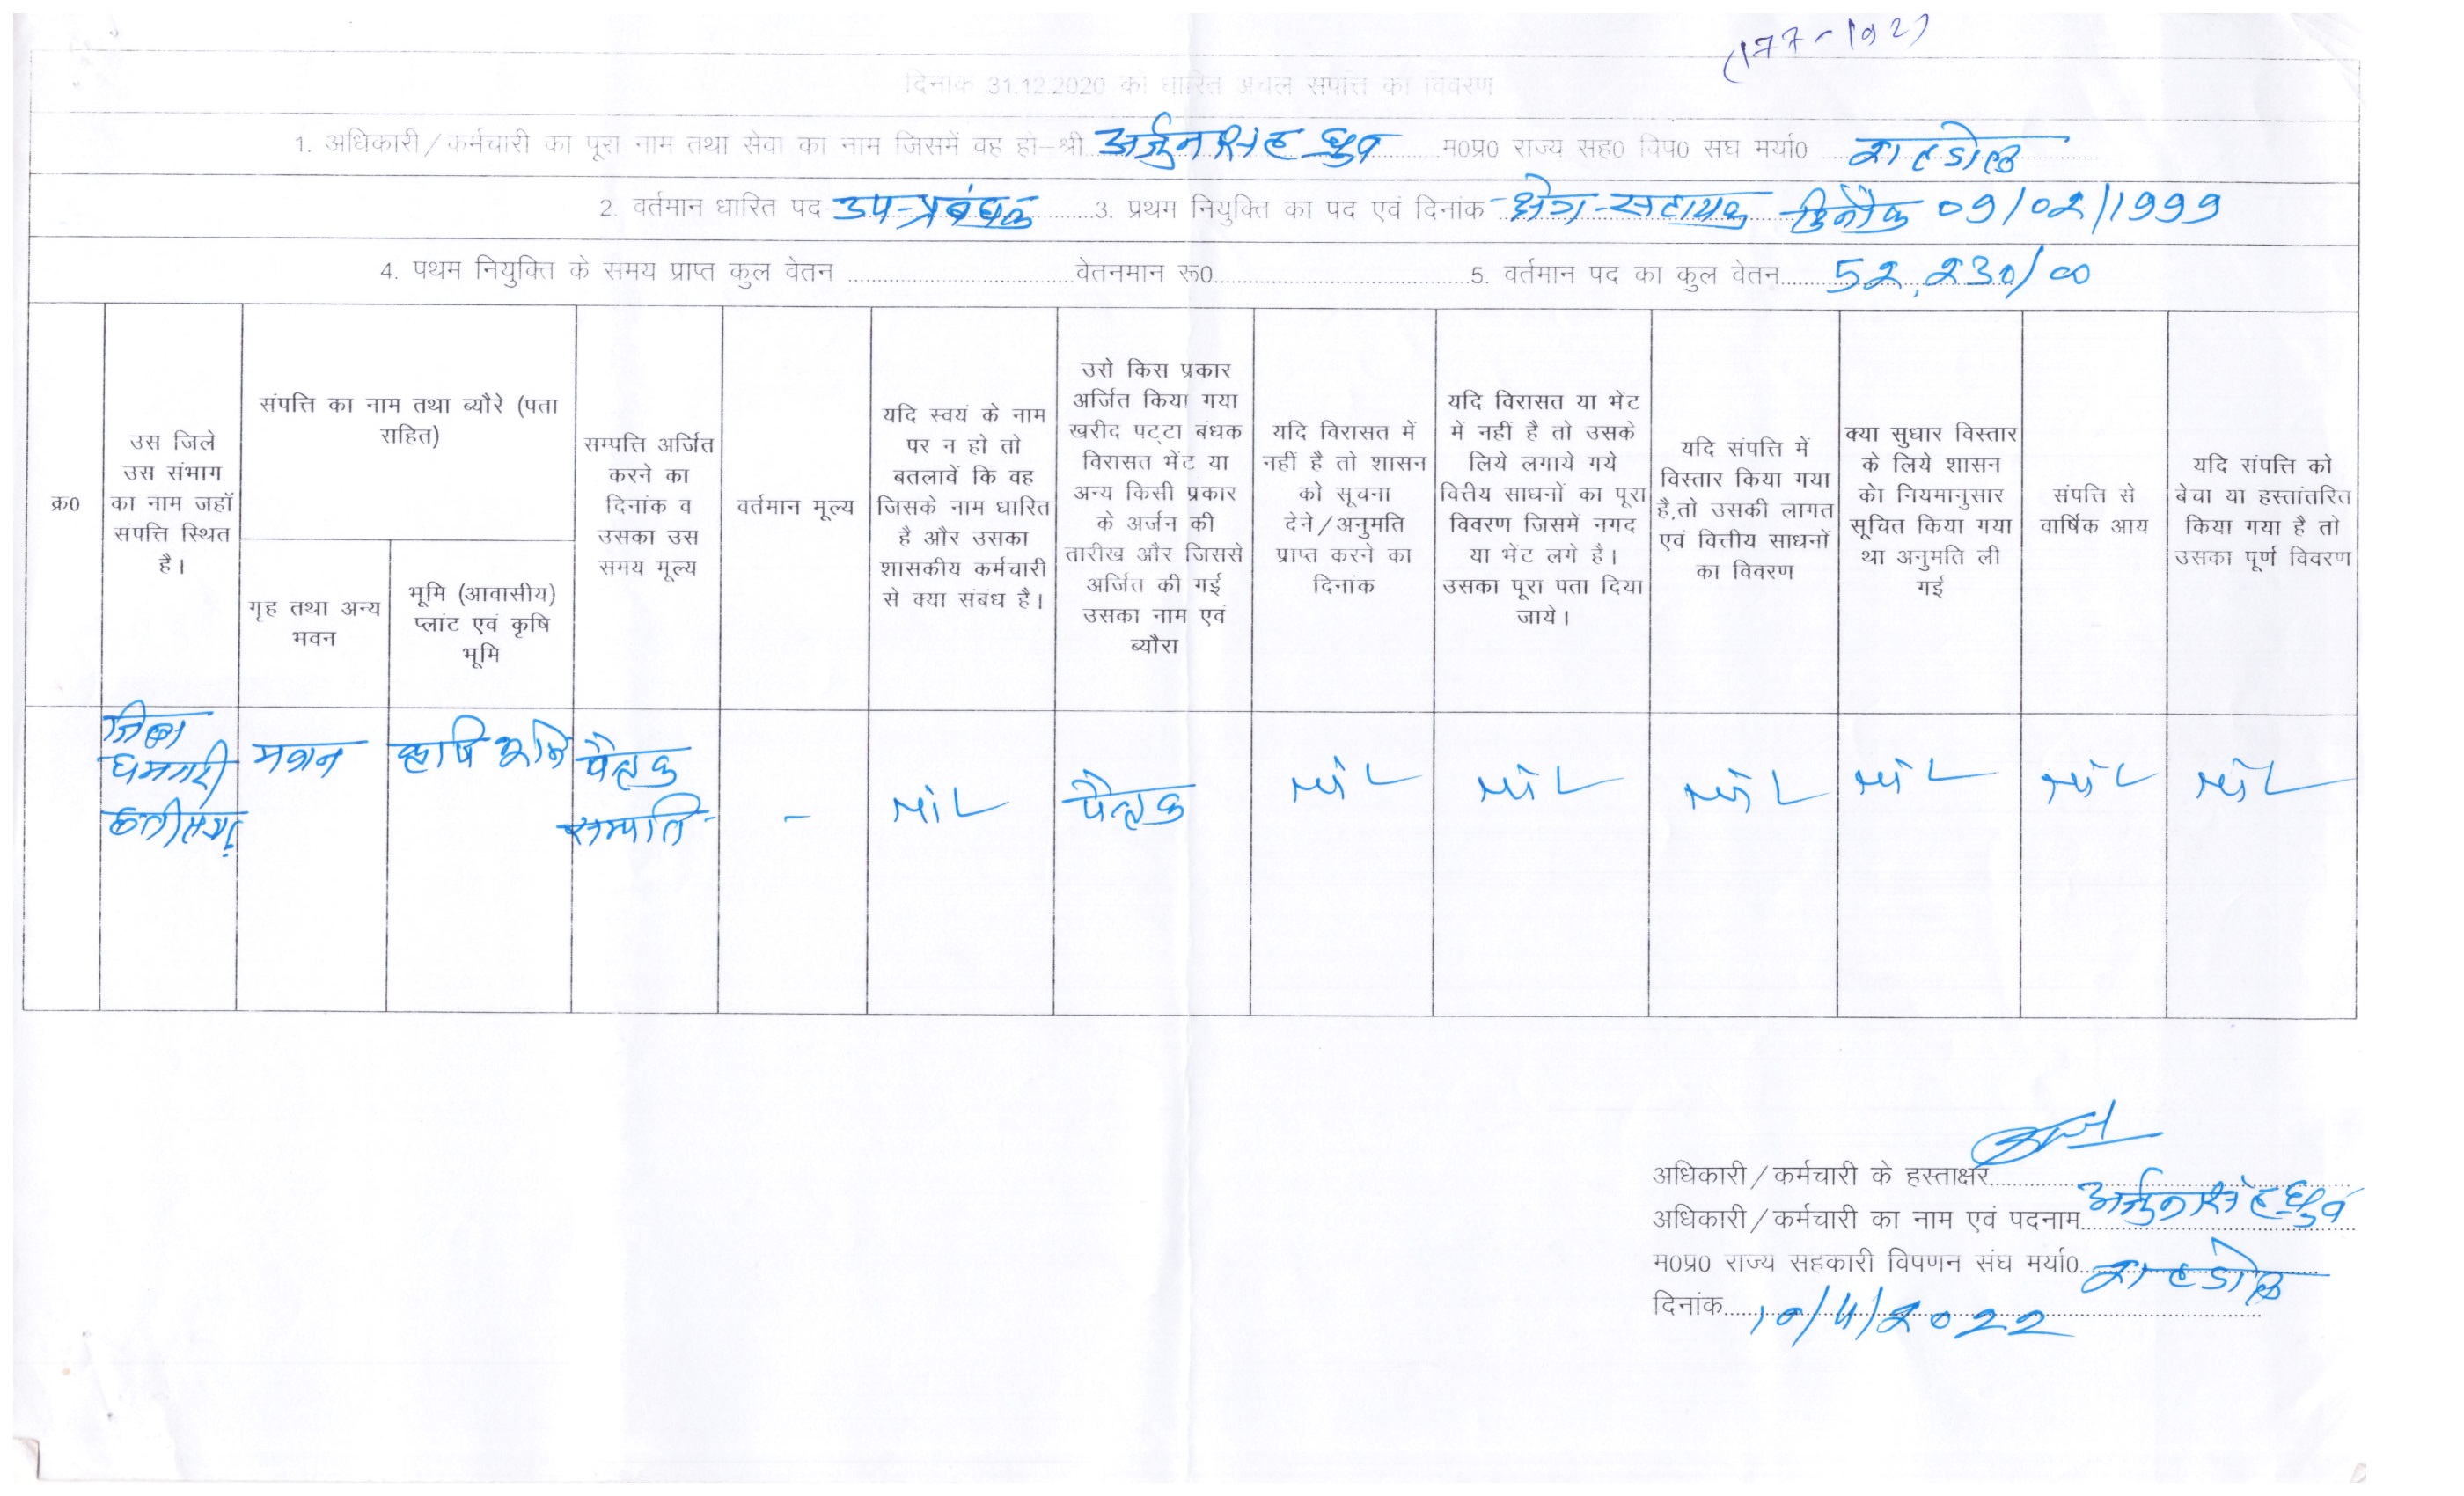 (177-192)
दिनांक 31.12.2020 को धारित अचल संपत्ति का विवरण
1. अधिकारी/कर्मचारी का पूरा नाम तथा सेवा का नाम जिसमें वह हो–श्री अर्जुन सिंह ध्रुव म0प्र0 राज्य सह0 विप0 संघ मर्या0 शहडोल
2. वर्तमान धारित पद– उप-प्रबंधक 3. प्रथम नियुक्ति का पद एवं दिनांक– क्षेत्र-सहायक दिनाँक 09/02/1999
4. पथम नियुक्ति के समय प्राप्त कुल वेतन ........ वेतनमान रू0........ 5. वर्तमान पद का कुल वेतन 52,230/00
क्र0
उस जिले
उस संभाग
का नाम जहॉ
संपत्ति स्थित
है।
संपत्ति का नाम तथा ब्यौरे (पता
सहित)
गृह तथा अन्य
भवन
भूमि (आवासीय)
प्लांट एवं कृषि
भूमि
सम्पत्ति अर्जित
करने का
दिनांक व
उसका उस
समय मूल्य
वर्तमान मूल्य
यदि स्वयं के नाम
पर न हो तो
बतलावें कि वह
जिसके नाम धारित
है और उसका
शासकीय कर्मचारी
से क्या संबंध है।
उसे किस प्रकार
अर्जित किया गया
खरीद पट्टा बंधक
विरासत भेंट या
अन्य किसी प्रकार
के अर्जन की
तारीख और जिससे
अर्जित की गई
उसका नाम एवं
ब्यौरा
यदि विरासत में
नहीं है तो शासन
को सूचना
देने/अनुमति
प्राप्त करने का
दिनांक
यदि विरासत या भेंट
में नहीं है तो उसके
लिये लगाये गये
वित्तीय साधनों का पूरा
विवरण जिसमें नगद
या भेंट लगे है।
उसका पूरा पता दिया
जाये।
यदि संपत्ति में
विस्तार किया गया
है,तो उसकी लागत
एवं वित्तीय साधनों
का विवरण
क्या सुधार विस्तार
के लिये शासन
को नियमानुसार
सूचित किया गया
था अनुमति ली
गई
संपत्ति से
वार्षिक आय
यदि संपत्ति को
बेचा या हस्तांतरित
किया गया है तो
उसका पूर्ण विवरण
जिला
धमतरी
छत्तीसगढ़
मकान
कृषि भूमि
पैतृक
सम्पत्ति
-
NiL
पैतृक
NiL
NiL
NiL
NiL
NiL
NiL
अधिकारी/कर्मचारी के हस्ताक्षर
अधिकारी/कर्मचारी का नाम एवं पदनाम अर्जुन सिंह ध्रुव
म0प्र0 राज्य सहकारी विपणन संघ मर्या0 शहडोल
दिनांक 10/4/2022